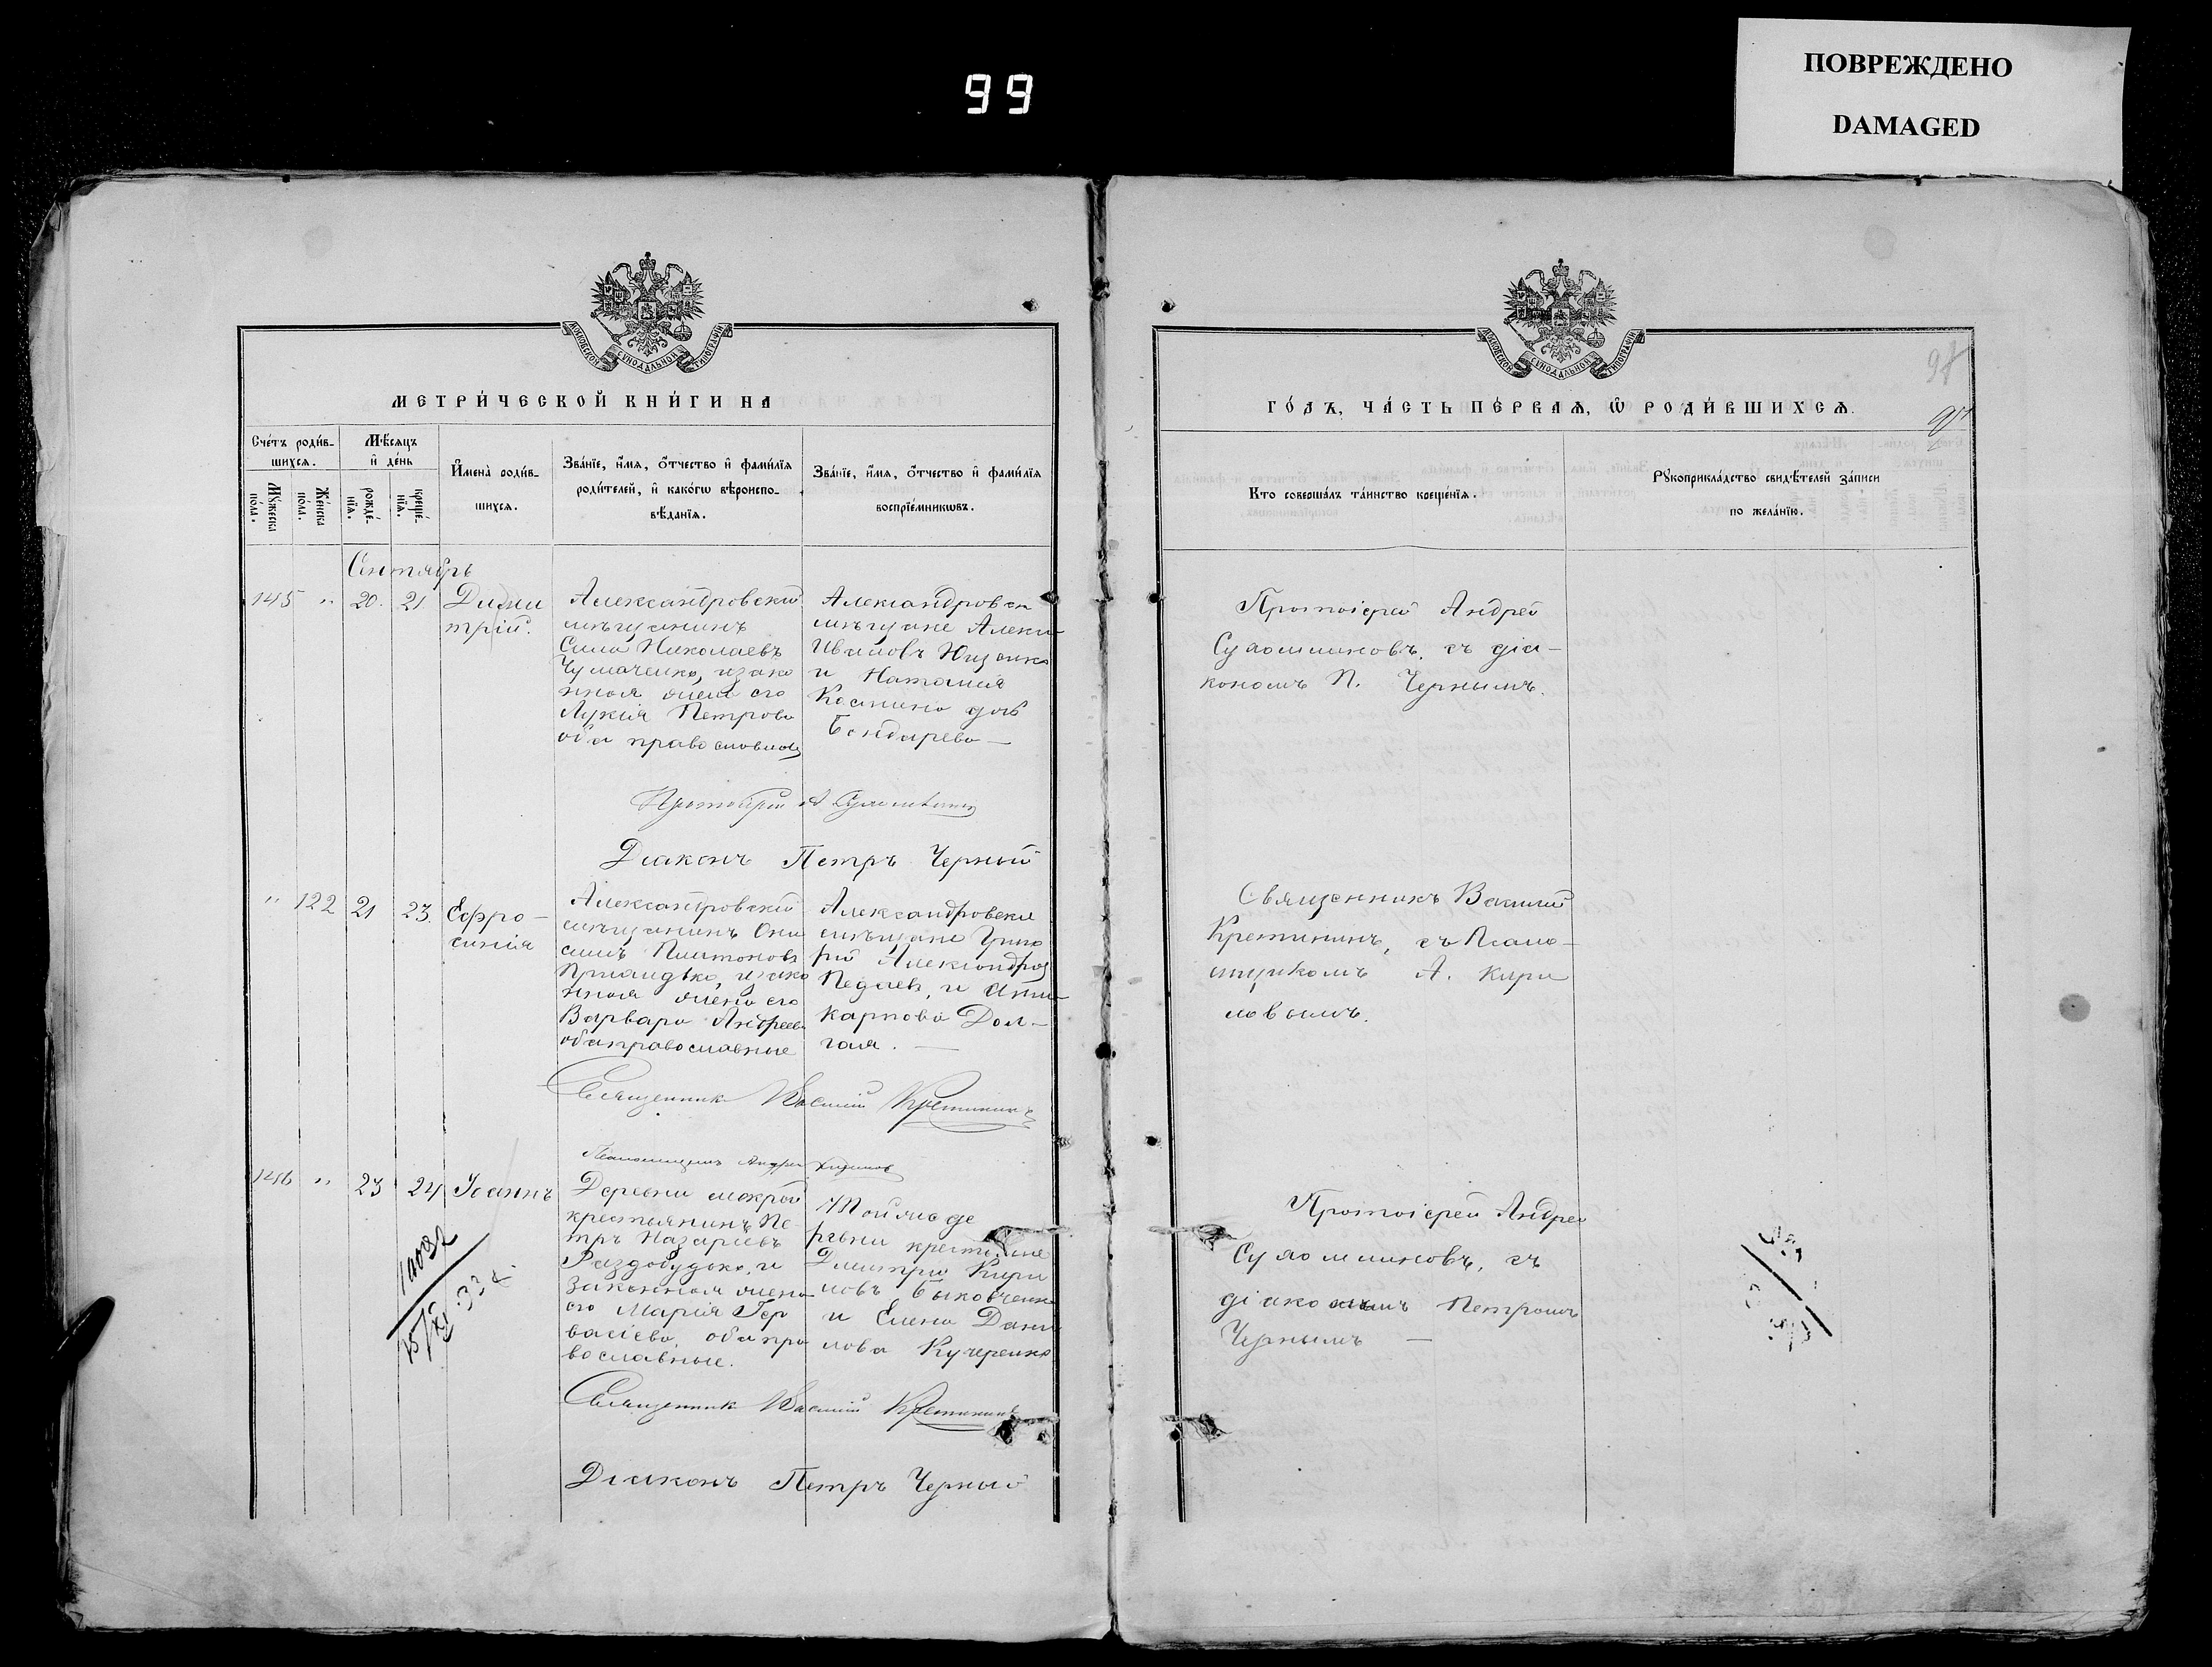 99
ПОВРЕЖДЕНО
DAMAGED
МОСКОВСКОЙ СѴНОДАЛЬНОЙ ТИПОГРАФІИ
МЕТРИ́ЧЕСКОЙ КНИ́ГИ НА
Сче́тъ роди́в-
шихсѧ.
Мꙋ́жеска
по́ла.
Же́нска
по́ла.
Мѣ́сѧцъ
и҆ де́нь
рожде́-
нїѧ.
креще́-
нїѧ.
И҆мена̀ роди́в-
шихсѧ.
Зва́нїе, и҆́мѧ, ѻ҆́тчество и҆ фами́лїѧ
роди́телей, и҆ како́гѡ вѣроиспо-
вѣ́данїѧ.
Зва́нїе, и҆́мѧ, ѻ҆́тчество и҆ фами́лїѧ
воспрїе́мникѡвъ.
Сентябрь
145 " 20. 21. Дими
трій.
Александровскій
мѣщанинъ
Сила Николаевъ
Чумаченко, и зако
нная жена его
Лукія Петрова
оба православные
Александровск
мѣщане Алекс
Ивановъ
и Наталія
Космина дочь
Бондарева —
Протоіерей А
Діаконъ Петръ Черный
" 122 21 23. Ефро-
синія
Александровскій
мѣщанинъ Они
симъ Платоновъ
и зако
нная жена его
Варвара Андреева
оба православные
Александровскіе
мѣщане Григо
рій Александров
Педаевъ, и
Карпова Дол-
гая. —
Священникъ Василій Крементинъ
Псаломщикъ Андрей Кирилов
146 " 23 24 Іоаннъ
Деревни мокрой
крестьянинъ Пе-
тръ Назаріевъ
Раздобудько, и
законная жена
его Марія Гер
васіева, оба пра
вославные.
Той же де
ревни крестьяне
Димитрій Кири
ловъ Быковченко
и Елена Дани
лова Кучеренко
Священникъ Василій
Діаконъ Петръ Черный
МОСКОВСКОЙ СѴНОДАЛЬНОЙ ТИПОГРАФІИ
ГО́ДЪ, ЧА́СТЬ ПЕ́РВАѦ, Ѡ҆ РОДИ́ВШИХСѦ.
Кто̀ соверша́лъ та́инство креще́нїѧ.
Рꙋкоприкла́дство свидѣ́телей за́писи
по жела́нїю.
Протоіерей Андрей
Сухомлиновъ, съ діа-
кономъ П. Чернымъ.
Священникъ Василій
съ Псало-
мщикомъ А. Кири
ловымъ.
Протоіерей Андрей
Сухомлиновъ, съ
діакономъ Петромъ
Чернымъ —